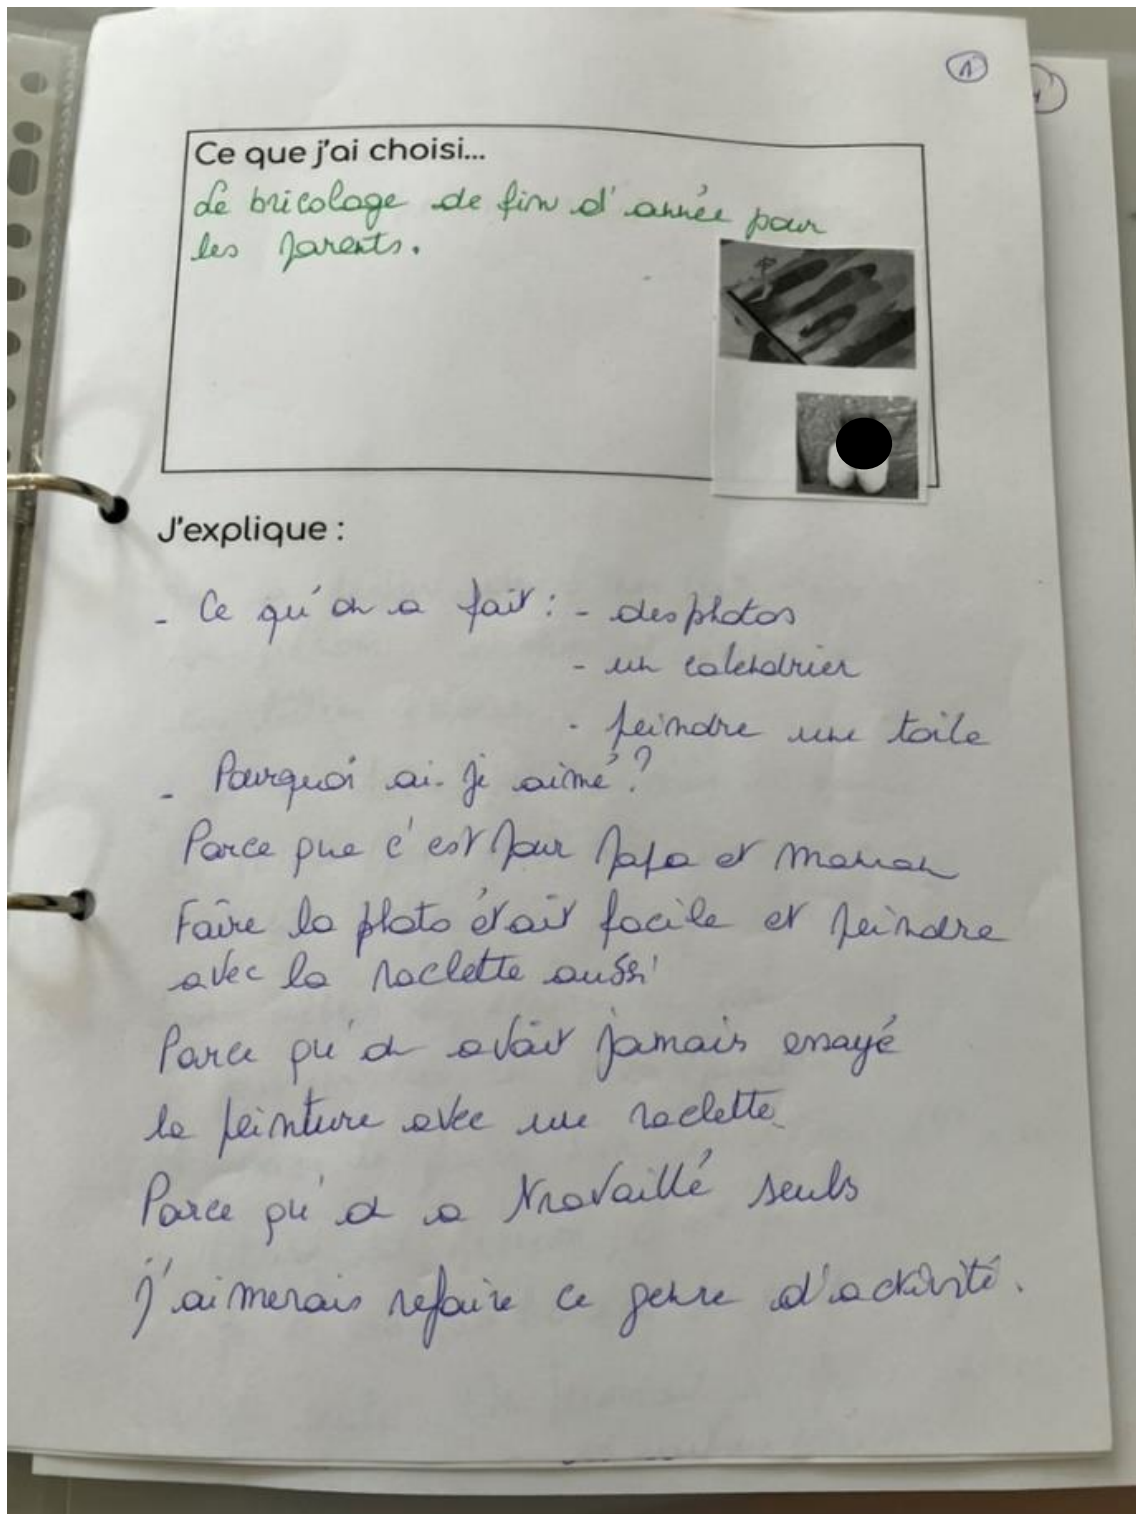 1
Ce que j'ai choisi...
Le bricolage de fin d'année pour
les parents.
J'explique :
- Ce qu'on a fait : - des photos
- un calendrier
- peindre une toile
- Pourquoi ai-je aimé ?
Parce que c'est pour Papa et Maman
Faire la photo était facile et peindre
avec la raclette aussi
Parce qu'on avait jamais essayé
la peinture avec une raclette
Parce qu'on a travaillé seuls
J'aimerais refaire ce genre d'activité.